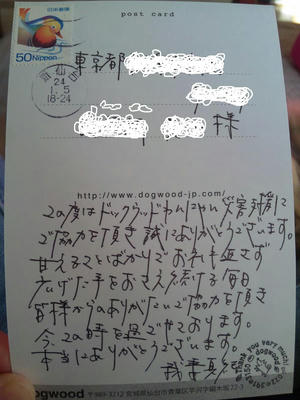 post card
日本郵便
50 NIPPON
仙
24
1.5
18-24
東京都
様
http://www.dogwood-jp.com/
この度はドッグウッドわんにゃん災害対応に
ご協力を頂き誠にありがとうございます。
甘えることばかりでお礼も返さず
広げた手をおさえ続ける毎日
皆様からのありがたいご協力を頂き
今この時を過ごせております。
本当にありがとうございます。
Thank you very much
dogwood
dogwood 〒989-3212 宮城県仙台市青葉区芋沢字横木坂22-3